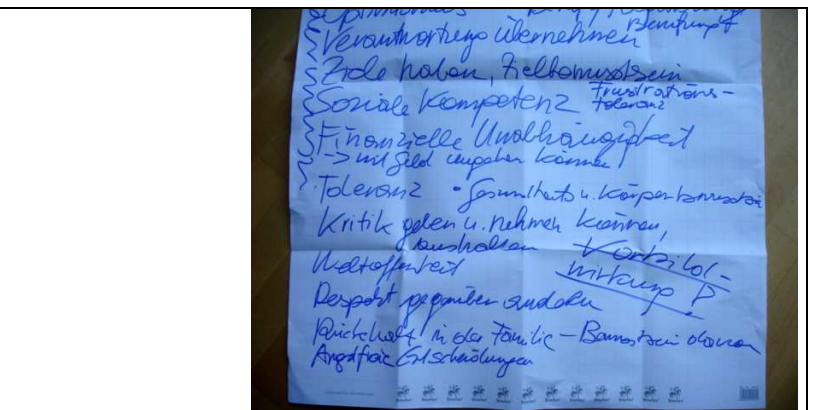 Optimismus
Verantwortung übernehmen
Ziele haben, Zielbewusstsein
Soziale Kompetenz Frustrations-
toleranz
Finanzielle Unabhängigkeit
-> mit Geld umgehen können!
Toleranz • Gesundheits u. Körperbewusstsein
Kritik geben u. nehmen können,
aushalten
Vorbild-
wirkung!
Weltoffenheit
Respekt gegenüber anderen
Rückhalt in der Familie – Bewusstsein davon
Angstfreie Entscheidungen